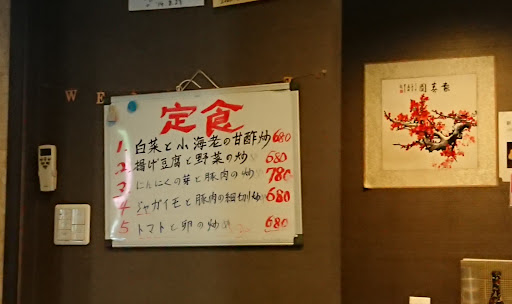 WE
定食
1 白菜と小海老の甘酢炒 680
2 揚げ豆腐と野菜の炒 680
3 にんにくの芽と豚肉の炒 780
4 ジャガイモと豚肉の細切炒 680
5 トマトと卵の炒 680